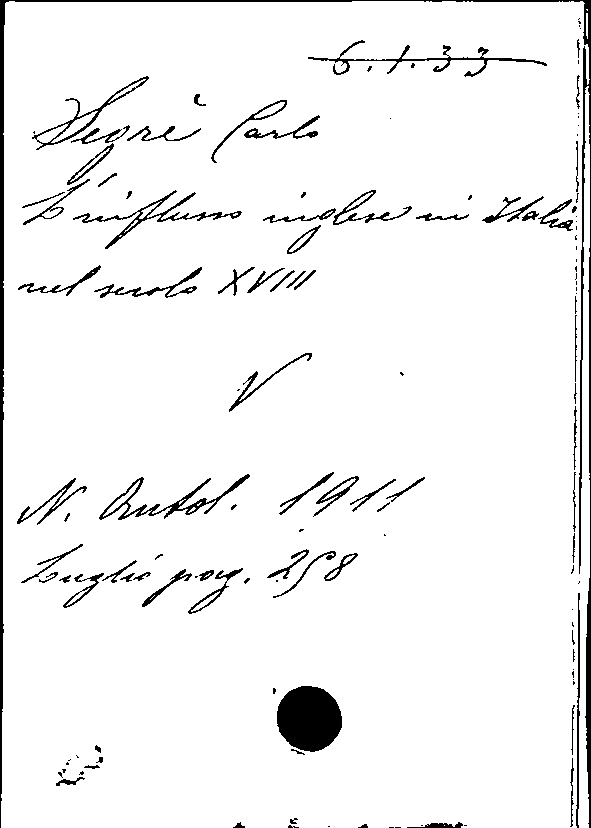 6.1.33
Segrè Carlo
L'influsso inglese in Italia
nel secolo XVIII
V
N. Antol. 1911
Luglio pag. 258